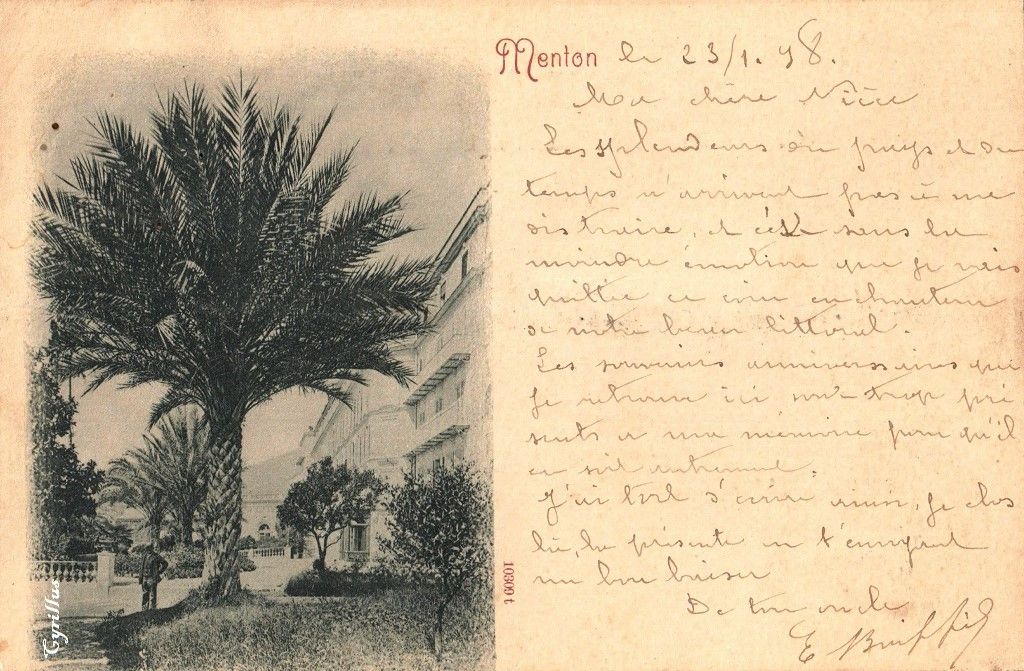 Menton le 23/1. 98.
Ma chère Nièce
Les splendeurs du pays et du
temps n'arrivent pas à me
distraire, et c'est sans la
moindre émotion que je vais
quitter ce coin enchanteur
de notre beau littoral.
Les souvenirs anniversaires que
je retrouve ici sont trop pré
sents a ma mémoire pour qu'il
en soit autrement.
J'ai tout s'écrire ainsi, je clos
la présente en t'envoyant
un bon baiser
De ton oncle
E
10309 t
Cyrillus